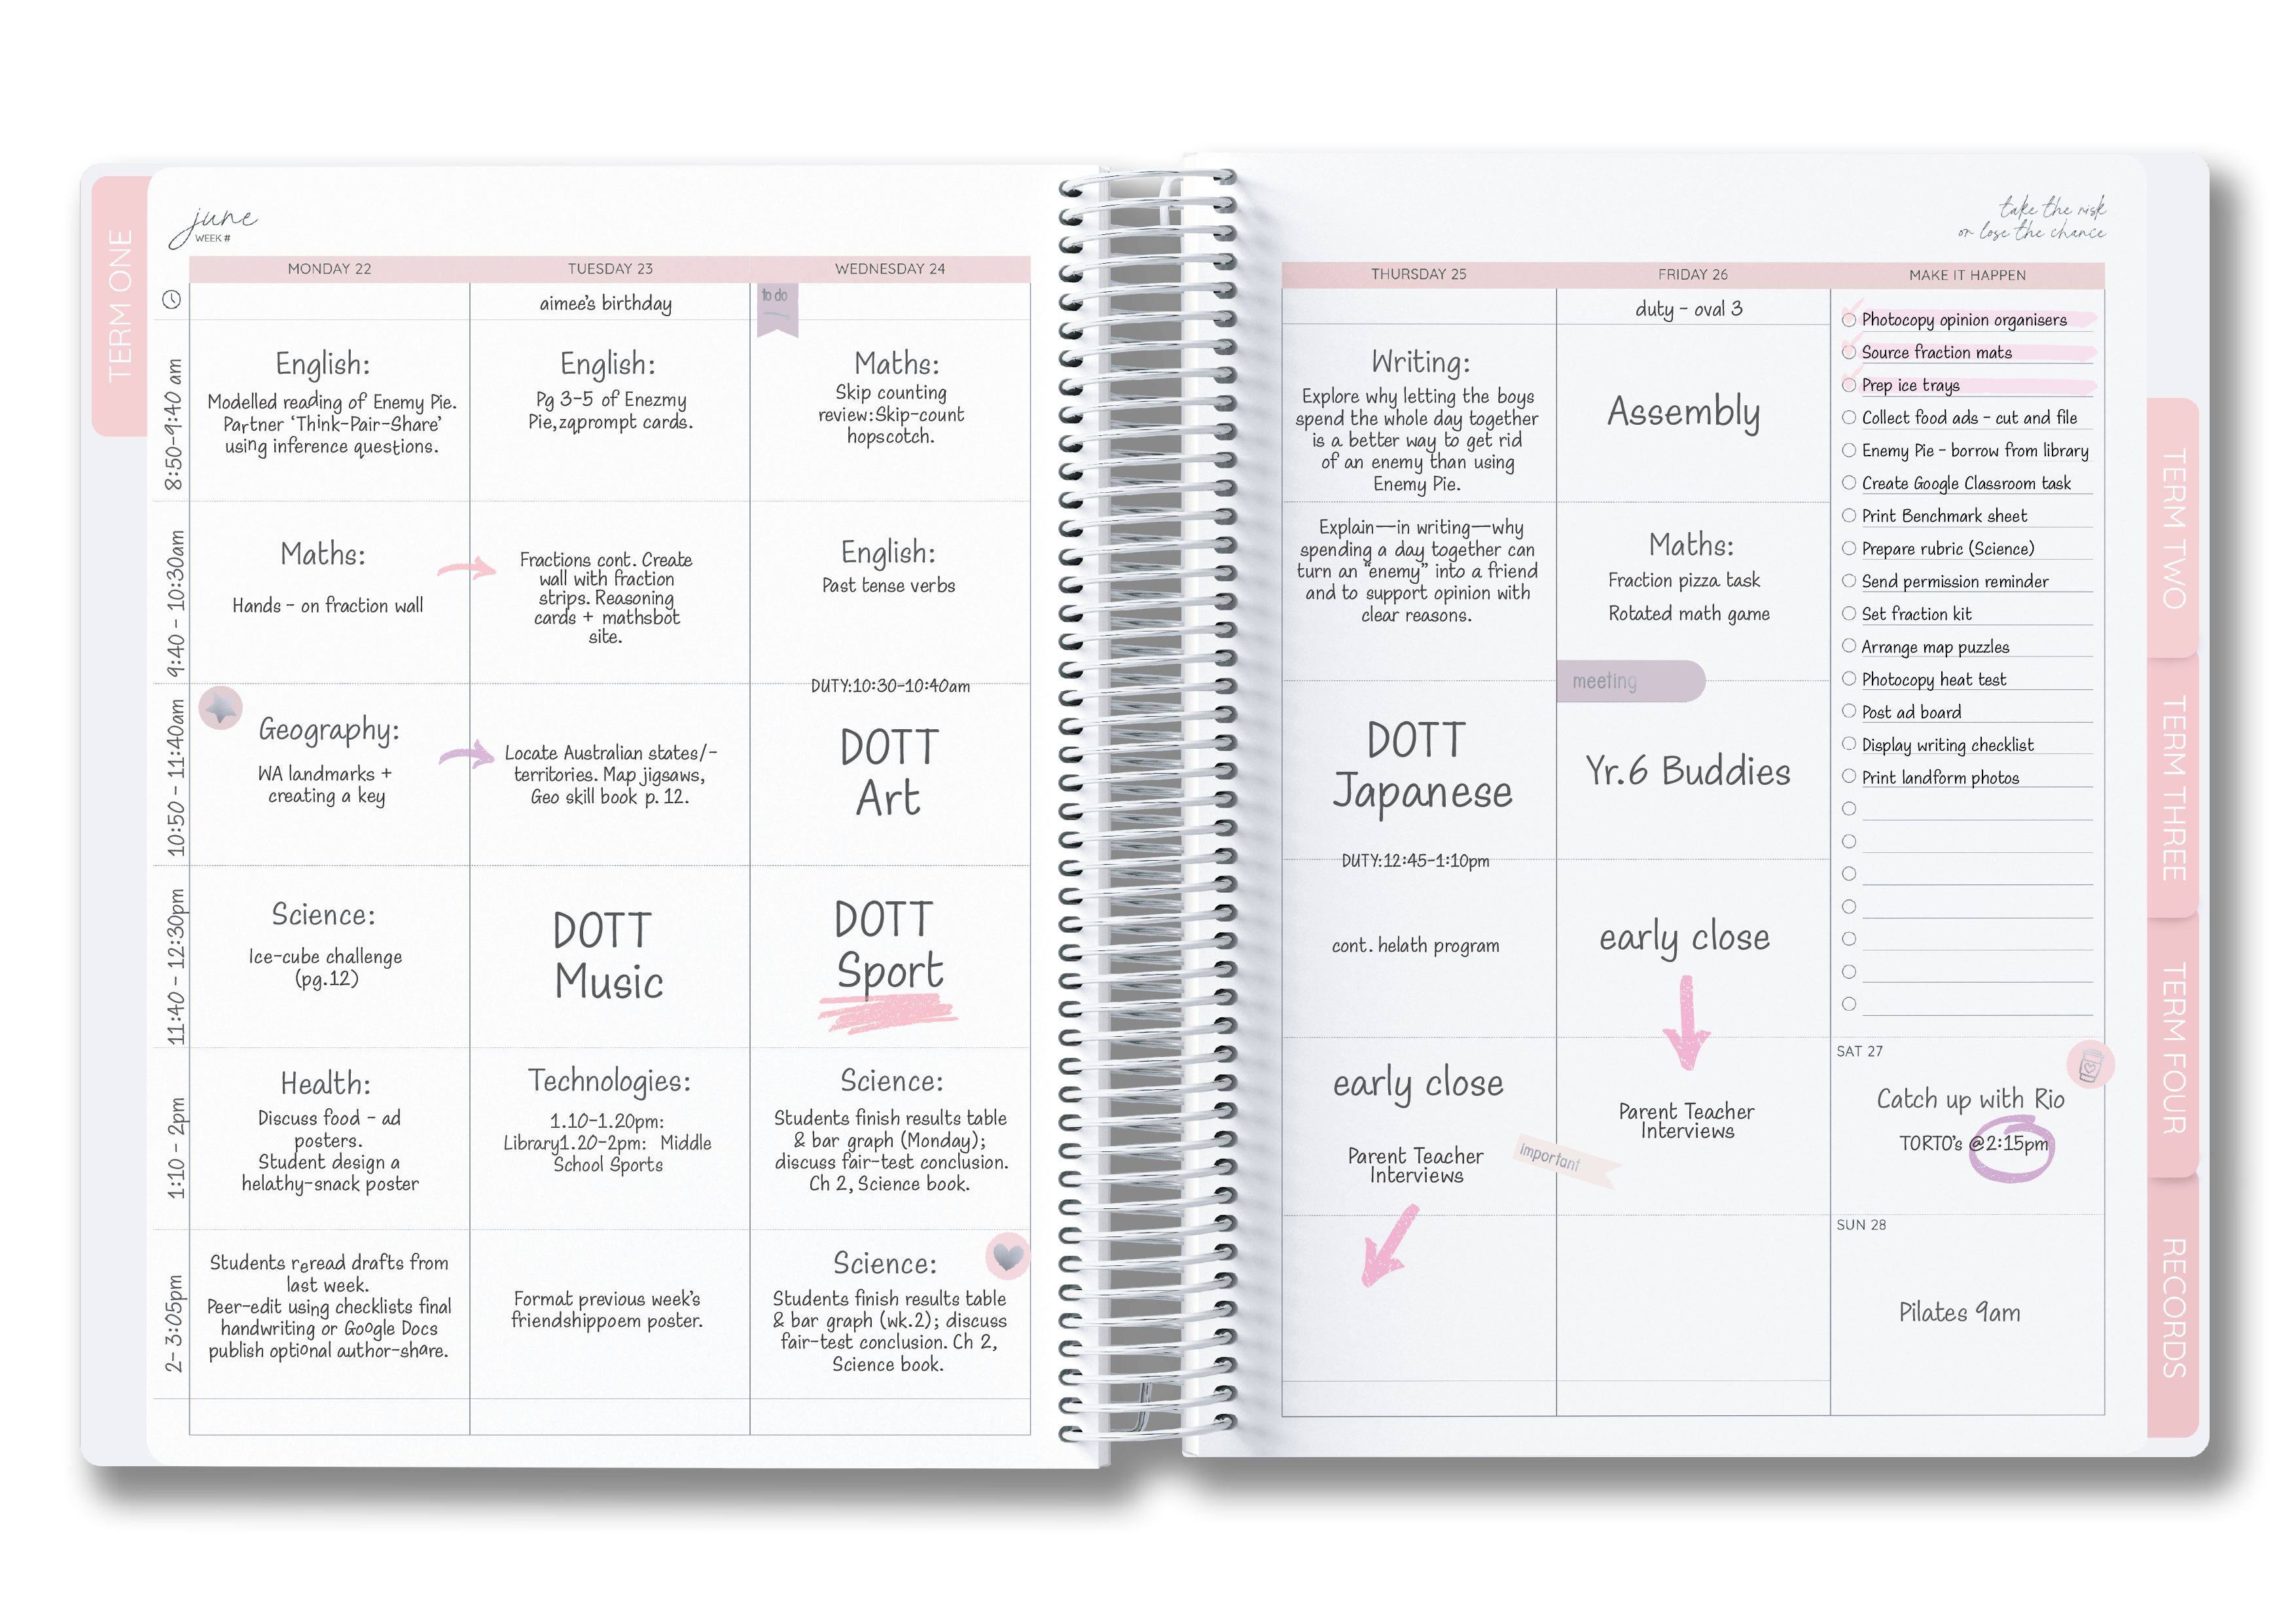 TERM ONE
june
WEEK #
MONDAY 22
TUESDAY 23
WEDNESDAY 24
aimee's birthday
to do
8:50-9:40 am
English:
Modelled reading of Enemy Pie.
Partner 'Think-Pair-Share'
using inference questions.
English:
Pg 3-5 of Enezmy
Pie,zqprompt cards.
Maths:
Skip counting
review:Skip-count
hopscotch.
9:40 - 10:30am
Maths:
Hands - on fraction wall
Fractions cont. Create
wall with fraction
strips. Reasoning
cards + mathsbot
site.
English:
Past tense verbs
DUTY:10:30-10:40am
10:50 - 11:40am
Geography:
WA landmarks +
creating a key
Locate Australian states/-
territories. Map jigsaws,
Geo skill book p. 12.
DOTT
Art
11:40 - 12:30pm
Science:
Ice-cube challenge
(pg.12)
DOTT
Music
DOTT
Sport
1:10 - 2pm
Health:
Discuss food - ad
posters.
Student design a
helathy-snack poster
Technologies:
1.10-1.20pm:
Library1.20-2pm: Middle
School Sports
Science:
Students finish results table
& bar graph (Monday);
discuss fair-test conclusion.
Ch 2, Science book.
2- 3:05pm
Students reread drafts from
last week.
Peer-edit using checklists final
handwriting or Google Docs
publish optional author-share.
Format previous week's
friendshippoem poster.
Science:
Students finish results table
& bar graph (wk.2); discuss
fair-test conclusion. Ch 2,
Science book.
take the risk
or lose the chance
THURSDAY 25
FRIDAY 26
MAKE IT HAPPEN
duty - oval 3
Writing:
Explore why letting the boys
spend the whole day together
is a better way to get rid
of an enemy than using
Enemy Pie.
Assembly
Explain—in writing—why
spending a day together can
turn an "enemy" into a friend
and to support opinion with
clear reasons.
Maths:
Fraction pizza task
Rotated math game
meeting
DOTT
Japanese
Yr.6 Buddies
DUTY:12:45-1:10pm
cont. helath program
early close
early close
Parent Teacher
Interviews
Important
Parent Teacher
Interviews
Photocopy opinion organisers
Source fraction mats
Prep ice trays
Collect food ads - cut and file
Enemy Pie - borrow from library
Create Google Classroom task
Print Benchmark sheet
Prepare rubric (Science)
Send permission reminder
Set fraction kit
Arrange map puzzles
Photocopy heat test
Post ad board
Display writing checklist
Print landform photos
SAT 27
Catch up with Rio
TORTO's @2:15pm
SUN 28
Pilates 9am
TERM TWO
TERM THREE
TERM FOUR
RECORDS